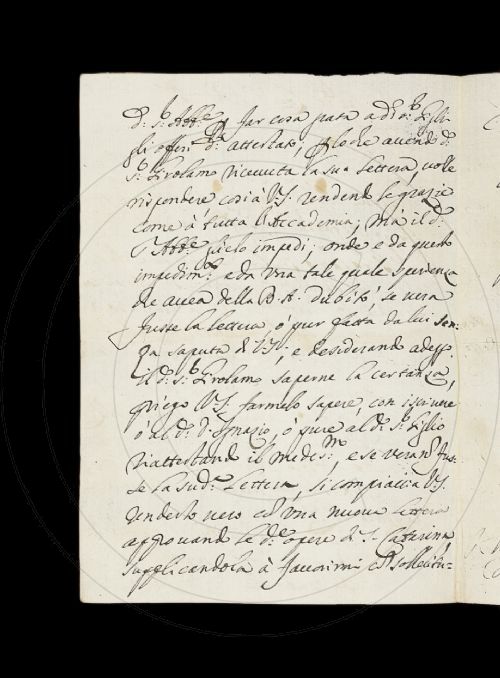 d:º s:r Abb:e p far cosa grata a d:º s:r Giglio
gli offerì d:º attestato, p loche avendo d:º
s:r Girolamo ricevuta la sua lettera, volle
rispondere così à V.S. rendendo le grazie
come à tutta l'Accademia; mà il d:º
s:r Abb:e glielo impedì; onde e da questo
impedim:to e da una tale quale sperienza
che avea della B. A. dubitò, se vera
fusse la lettera, ò pur fatta da lui sen:
za saputa di V.S., e desiderando adesso
il d:º s:r Girolamo saperne la certanza,
priego V.S. farmelo sapere, con iscrivere
ò al d:º D. Ignazio, ò pure al d:º s:r Giglio
riattestando il medes:mo, e se veram:e fus:
se la sud:a lettera, si compiaccia V.S.
renderlo vero con una nuova lettera
approvando le d:e opere di S. Caterina,
supplicandola à favorirmi con sollecitu=